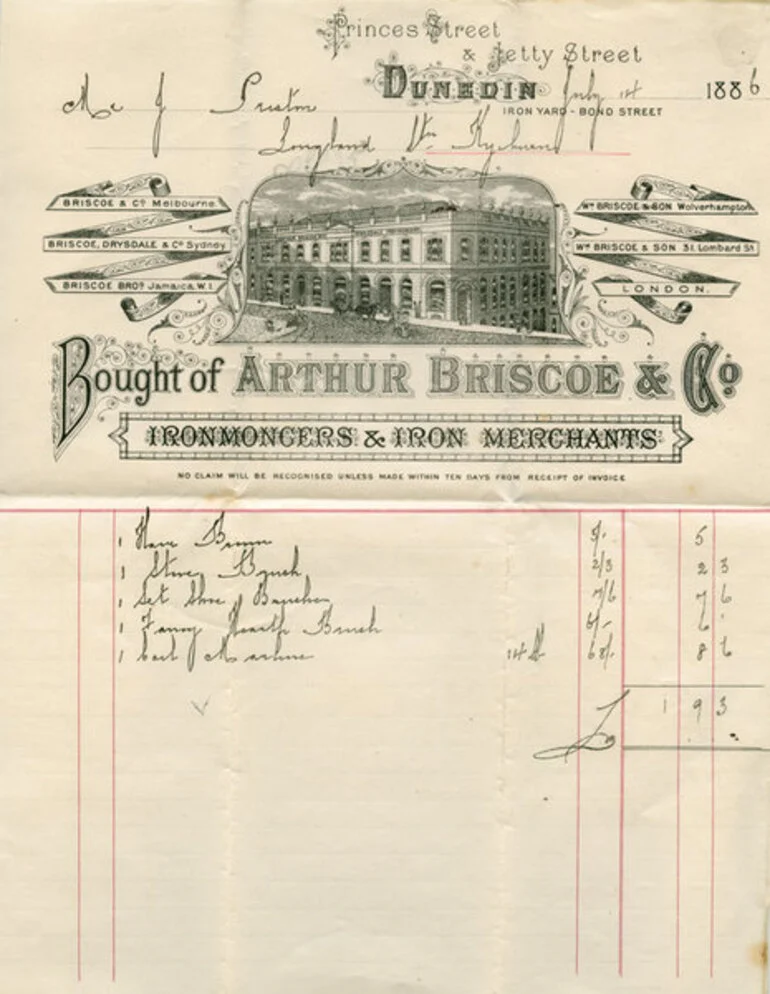 Princes Street
& Jetty Street
DUNEDIN July 1st 1886
IRON YARD - BOND STREET
Mr J Preston
Longland Stn Kyeburn
BRISCOE & Co Melbourne.
BRISCOE, DRYSDALE & Co Sydney
BRISCOE BROs Jamaica W.I.
Wm BRISCOE & SON Wolverhampton
Wm BRISCOE & SON 31. Lombard St
LONDON.
Bought of ARTHUR BRISCOE & Co
IRONMONGERS & IRON MERCHANTS
NO CLAIM WILL BE RECOGNISED UNLESS MADE WITHIN TEN DAYS FROM RECEIPT OF INVOICE
1 Broom 5/- 5
1 Stove Brush 2/3 2 3
1 Set Shoe Brushes 7/6 7 6
1 Fancy Hearth Brush 6/- 6
1 14 68/- 8 6
£ 1 9 3